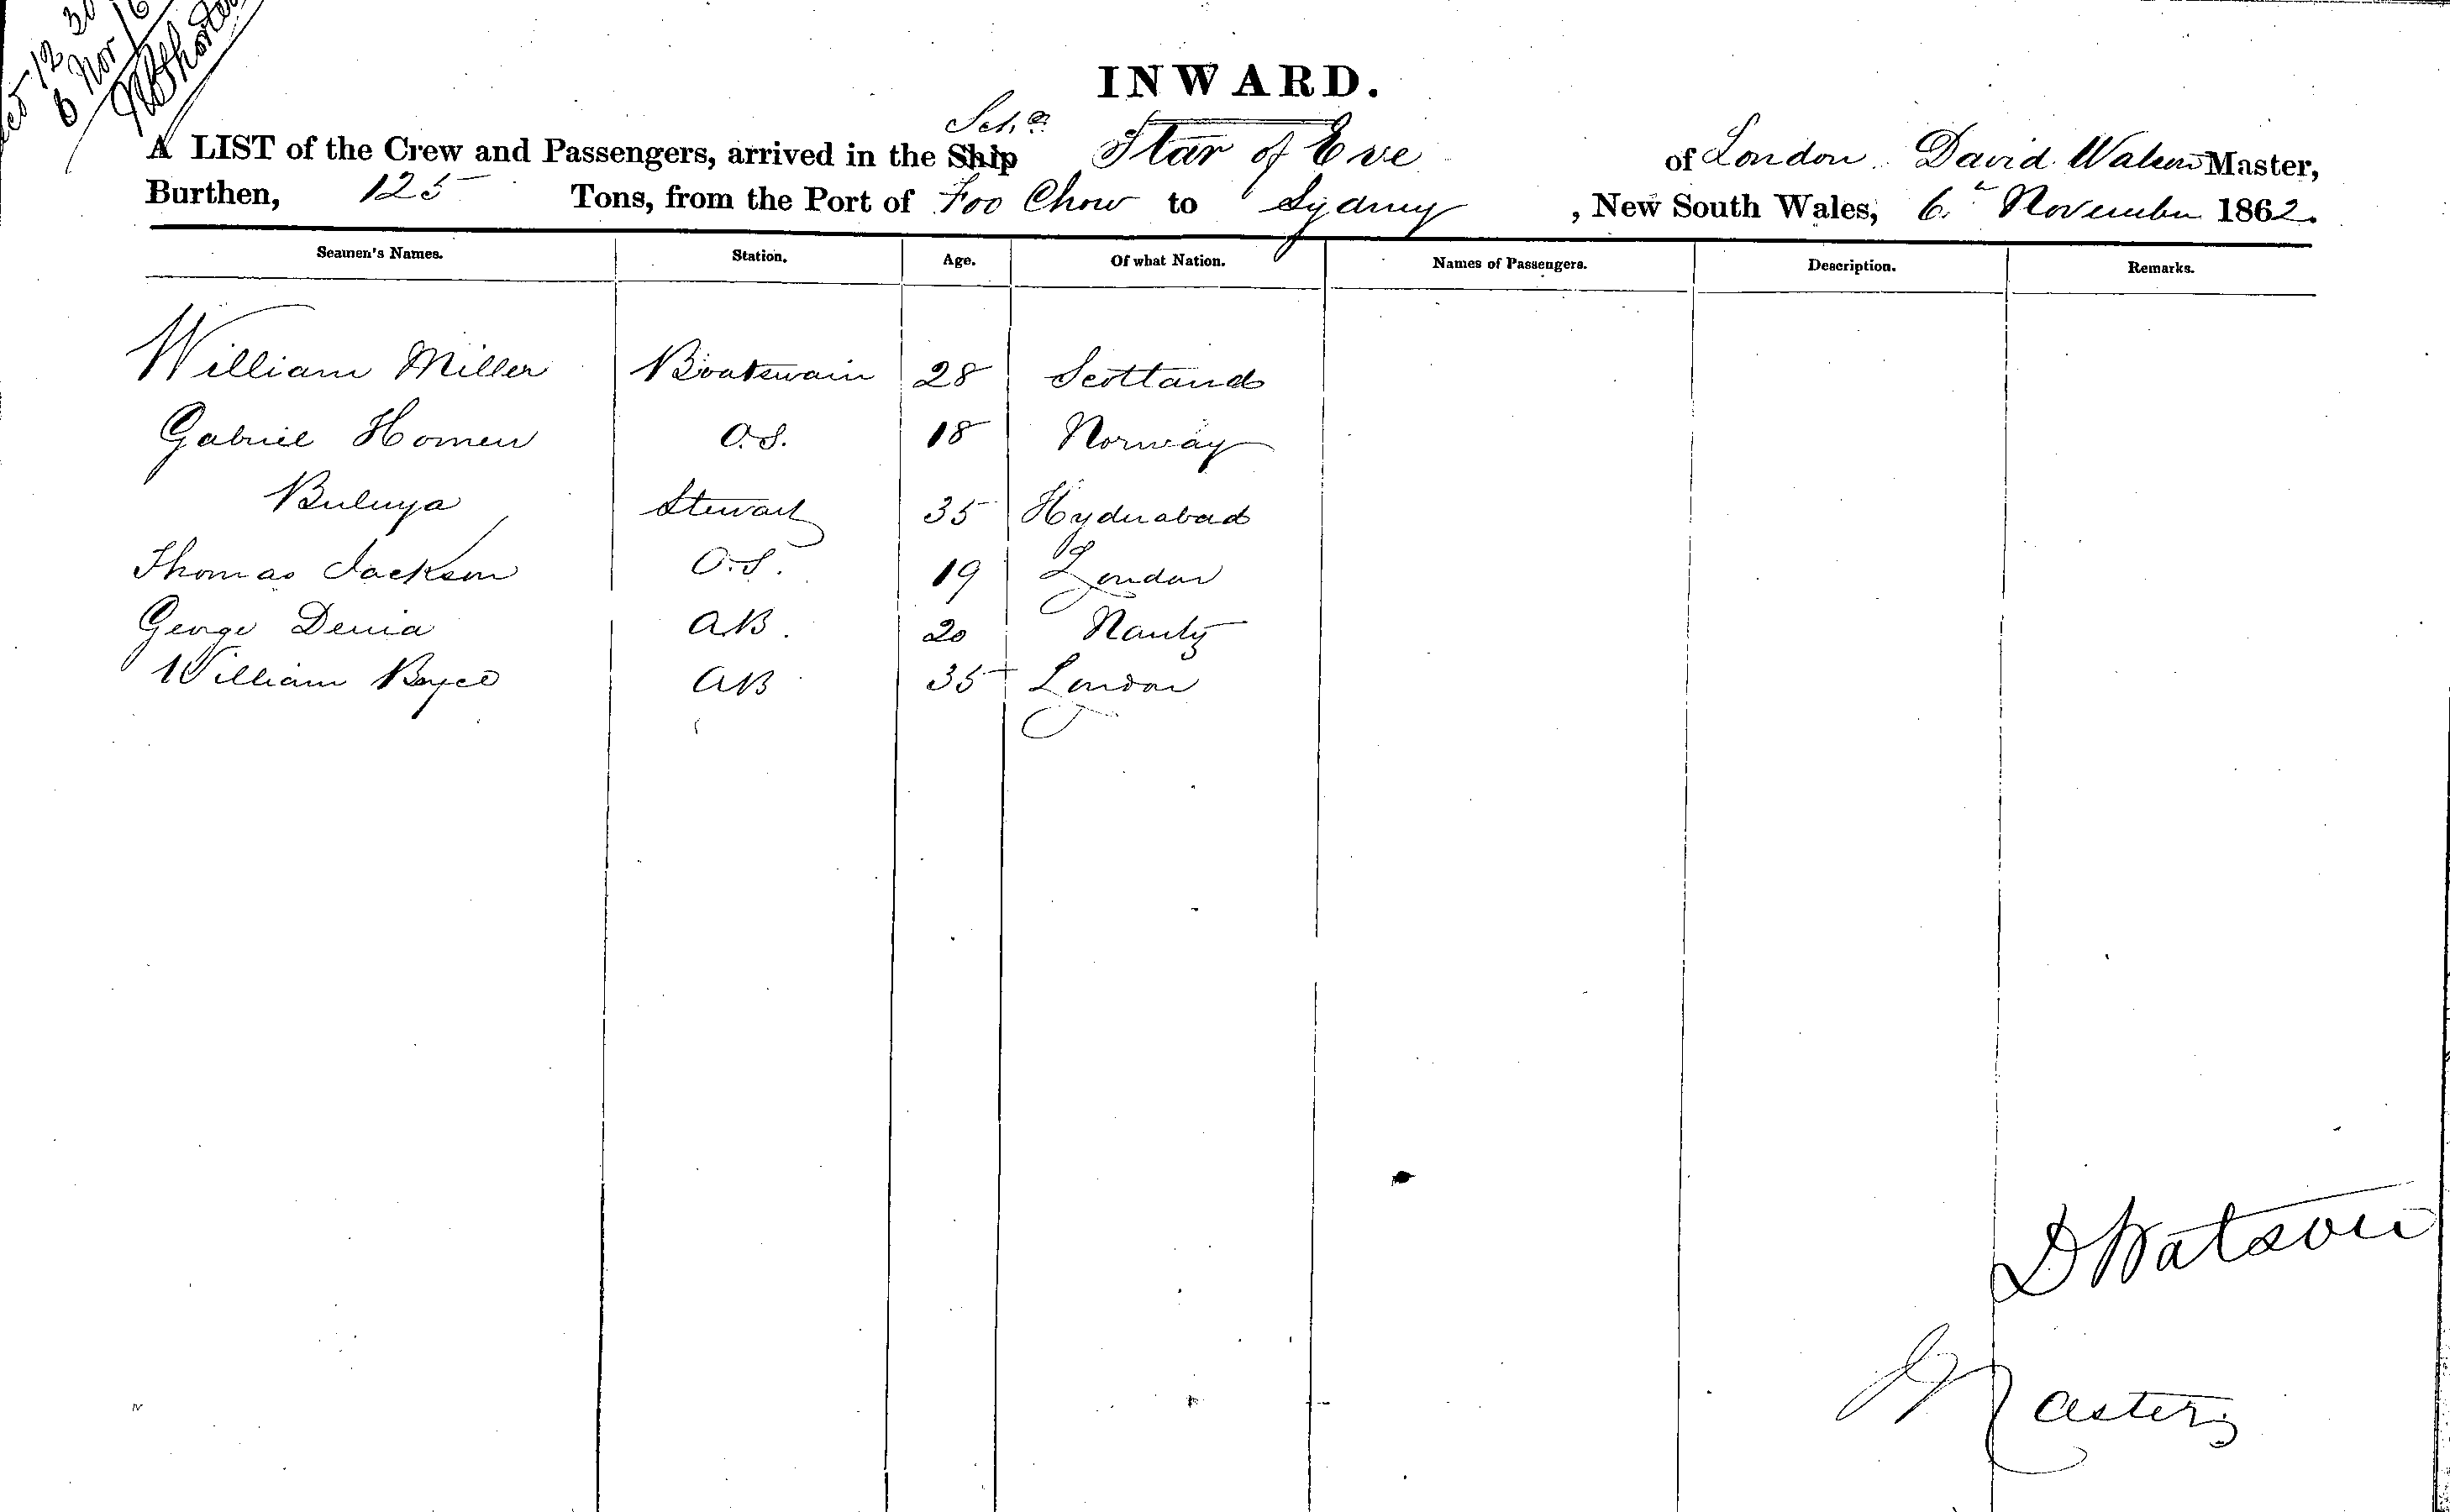 12 30
6 Nov / 6
INWARD.
Schr
A LIST of the Crew and Passengers, arrived in the Ship Star of Eve of London David Watson Master,
Burthen, 125 Tons, from the Port of Foo Chow to Sydney , New South Wales, 6th November 1862.
Seamen's Names. Station. Age. Of what Nation. Names of Passengers. Description. Remarks.
William Miller Boatswain 28 Scotland
Gabriel Homen O.S. 18 Norway
Buluya Steward 35 Hyderabad
Thomas Jackson O.S. 19 London
George Denia AB. 20 Nantz
William Boyce AB 35 London
D Watson
Master